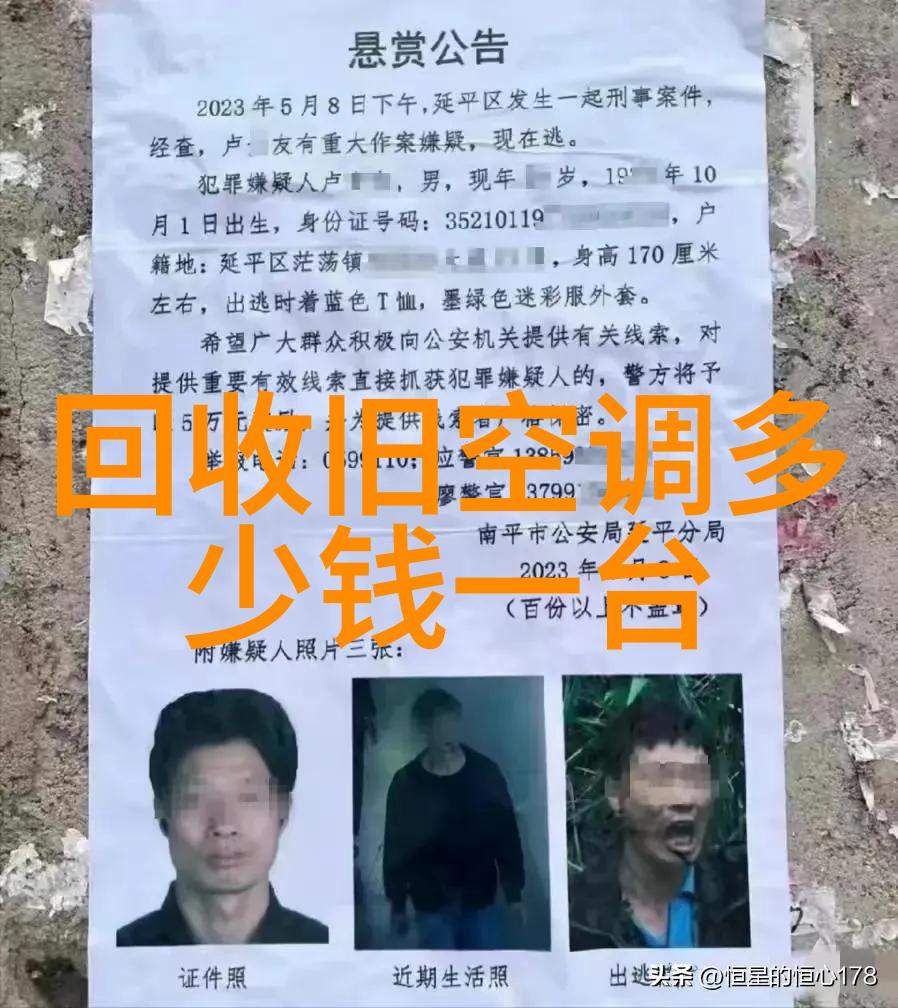 悬赏公告
2023年5月8日下午,延平区发生一起刑事案件,
经查,卢 友有重大作案嫌疑,现在逃。
犯罪嫌疑人卢 ,男,现年 岁,19 年10
月1日出生,身份证号码:35210119 ,户
籍地:延平区茫荡镇 ,身高170厘米
左右,出逃时着蓝色T恤,墨绿色迷彩服外套。
希望广大群众积极向公安机关提供有关线索,对
提供重要有效线索直接抓获犯罪嫌疑人的,警方将予
5万元 提供线索 密。
回收旧空调多
举报电话:0599110; 应警官13859
廖警官 3799
南平市公安局延平分局
少钱一台
2023年
(百份以上不盖章)
附嫌疑人照片三张:
证件照
近期生活照
出逃
头条 @恒星的恒心178